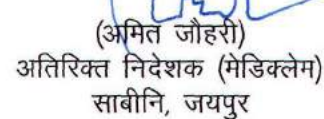 (अमित जौहरी)
अतिरिक्त निदेशक (मेडिक्लेम)
साबीनि, जयपुर